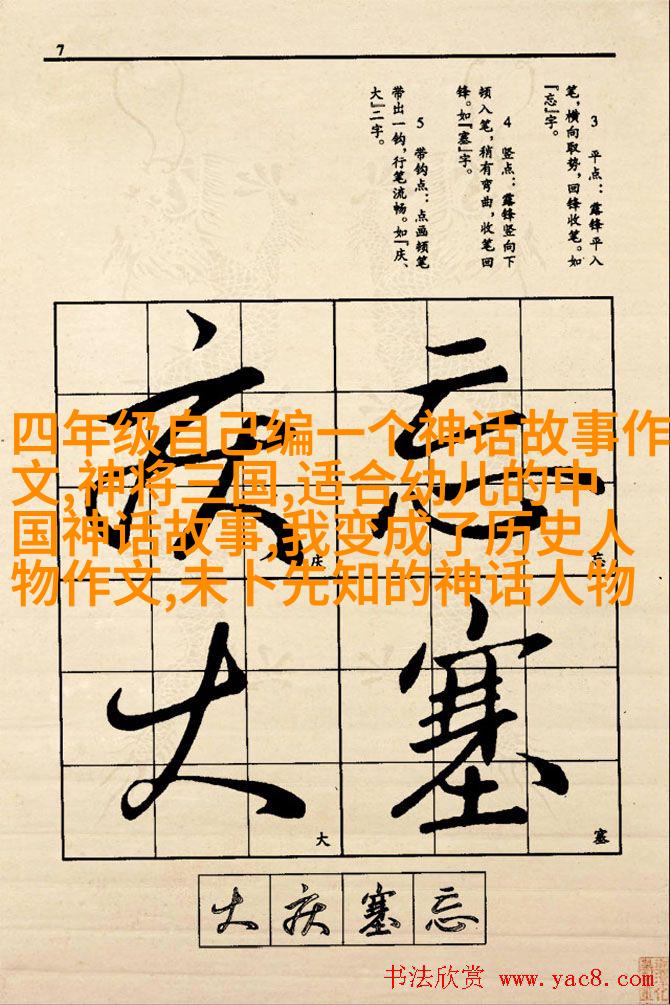 7
3 平点：露锋平入
笔，横向取势，回锋收笔。如
『忘』字。
4 竖点：露锋竖向下
顿入笔，稍有弯曲，收笔回
锋。如『塞』字。
5 带钩点：点画顿笔
带出一钩，行笔流畅。如『庆、
大』二字。
忘
庆
忘
庆
四年级自己编一个神话故事作
文,神将三国,适合幼儿的中
国神话故事,我变成了历史人
物作文,未卜先知的神话人物
塞
大
塞
大
大庆塞忘
书法欣赏 www.yac8.com